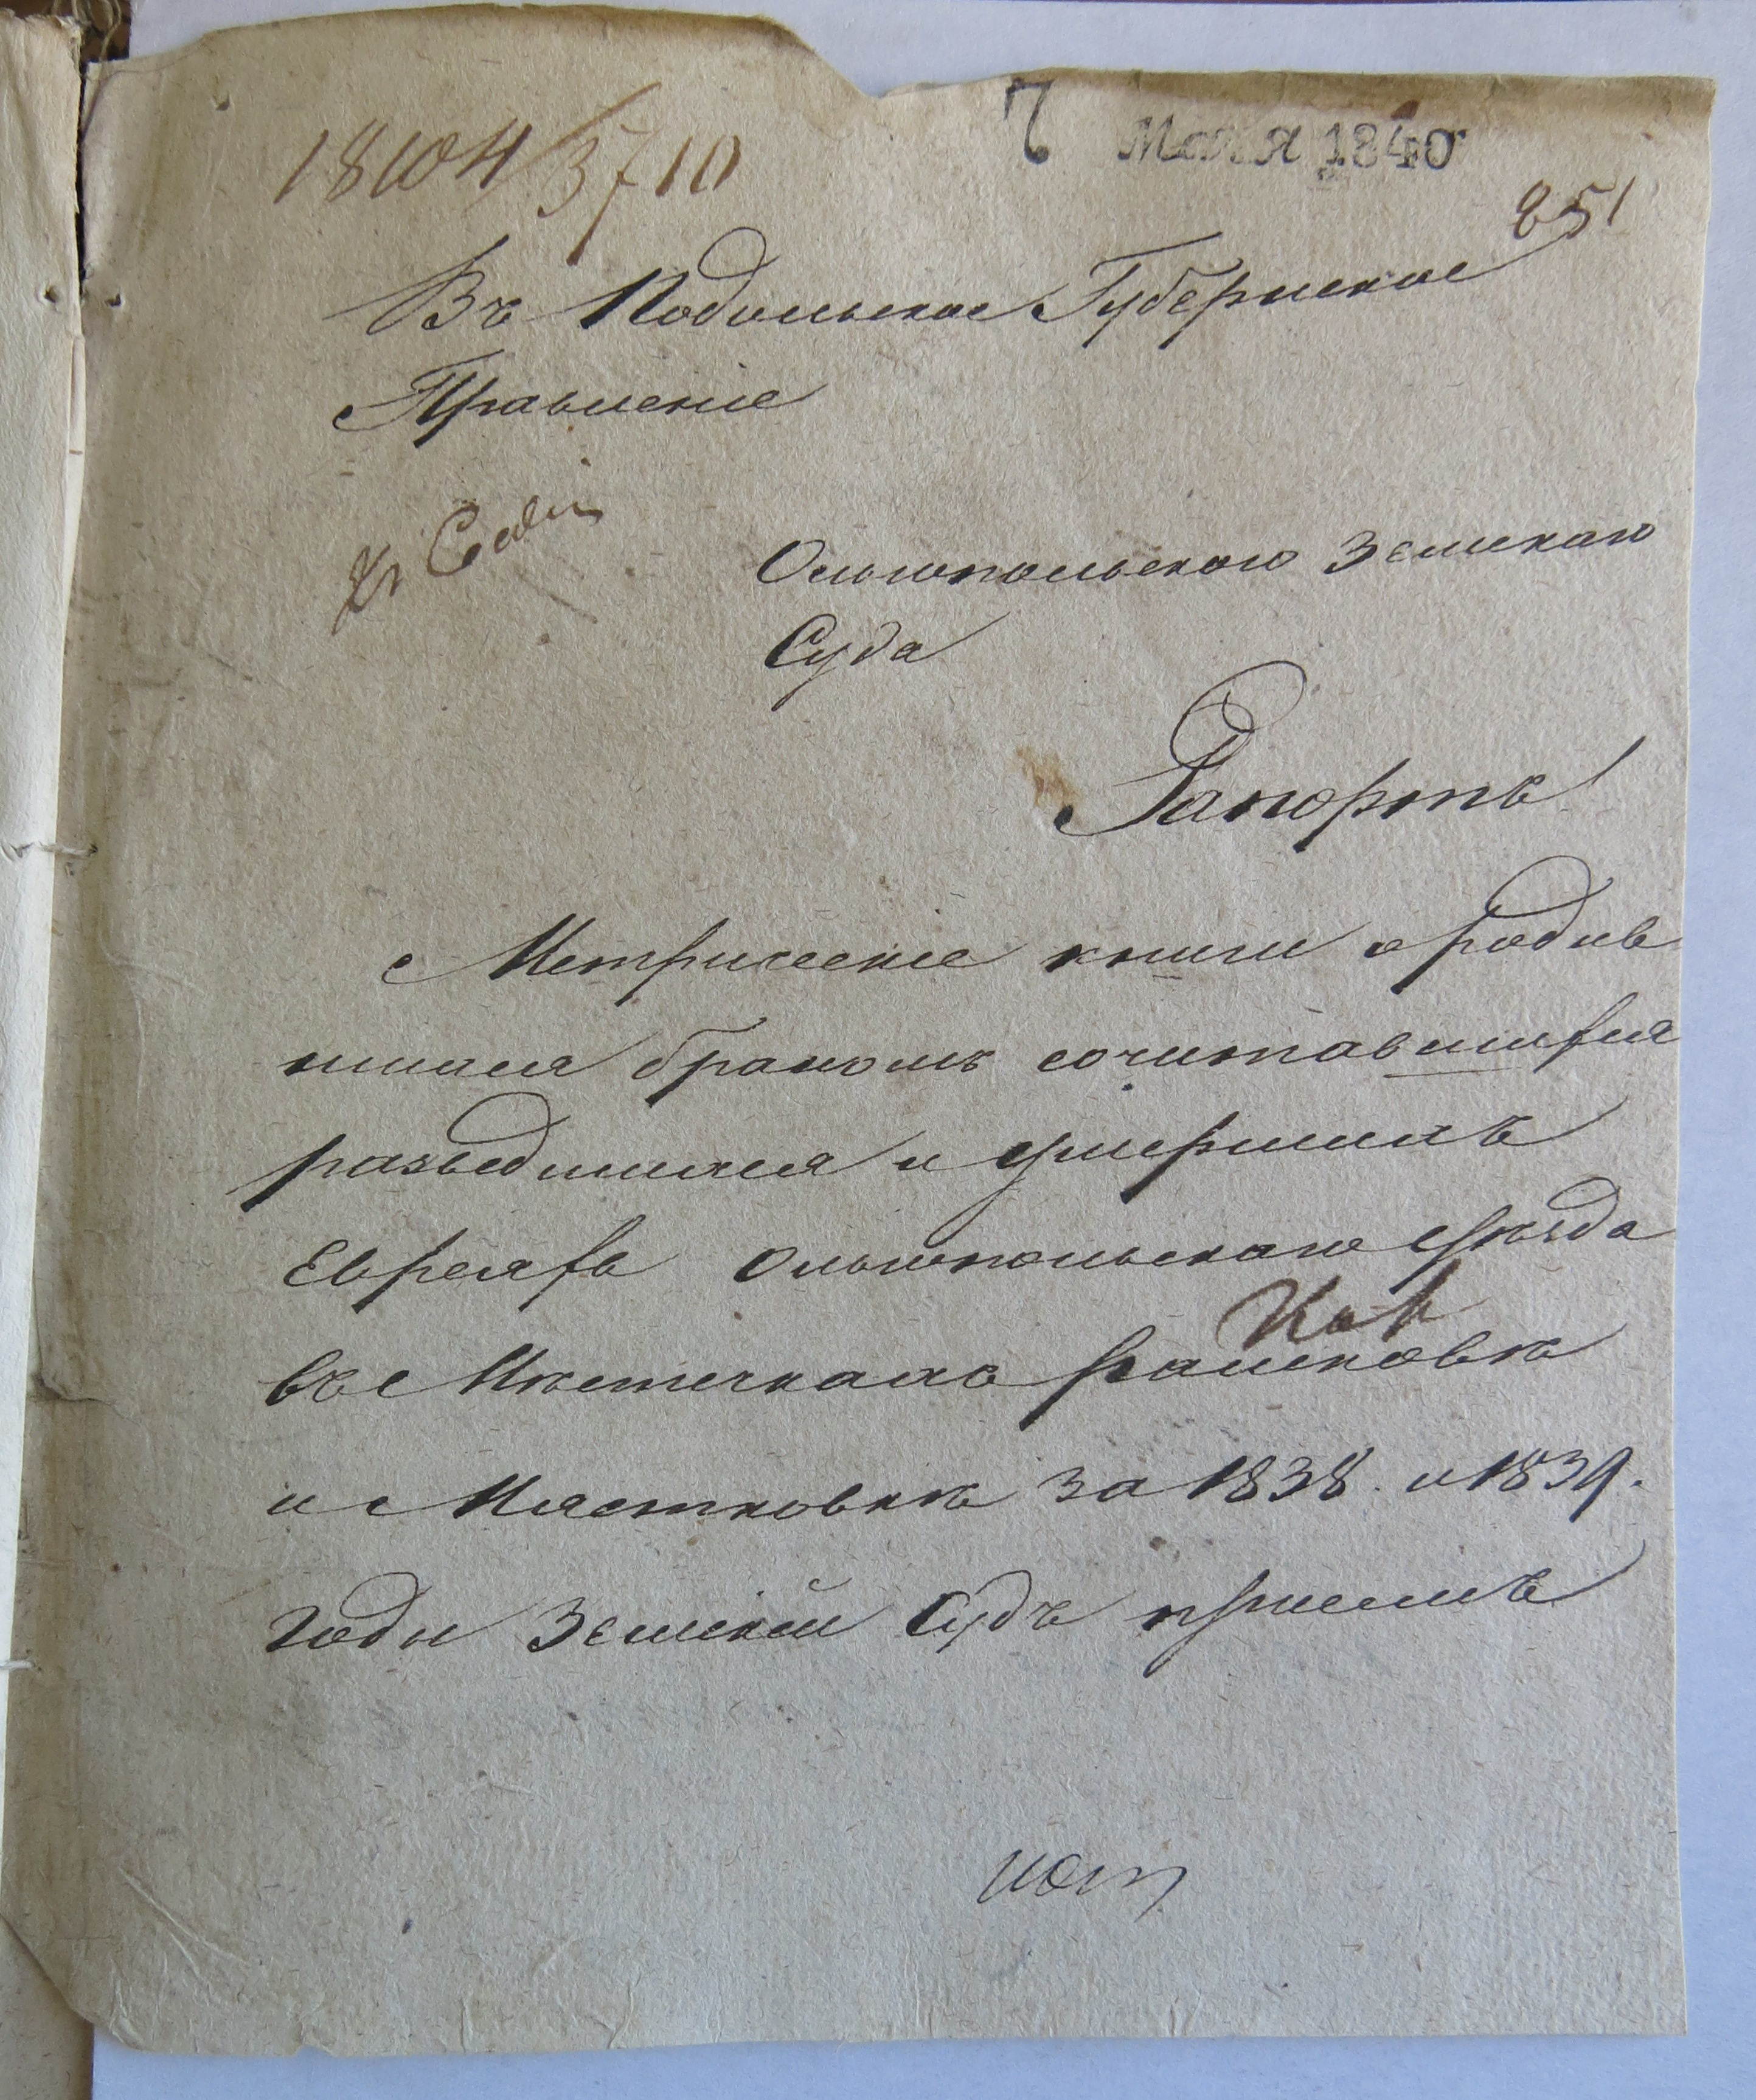 18104/3710
7 Маия 1840
251
Въ Подольское Губернское
Правленіе
Ольгопольскаго Земскаго
Суда
Рапортъ
Метрическіе книги о родив
шихся бракомъ сочитавшихся
разведшихся и умершихъ
Евреяхъ Ольгопольскаго уѣзда
въ Мѣстечкахъ рашковѣ
и Мястковкѣ за 1838. и 1839.
годы Земскій Судъ